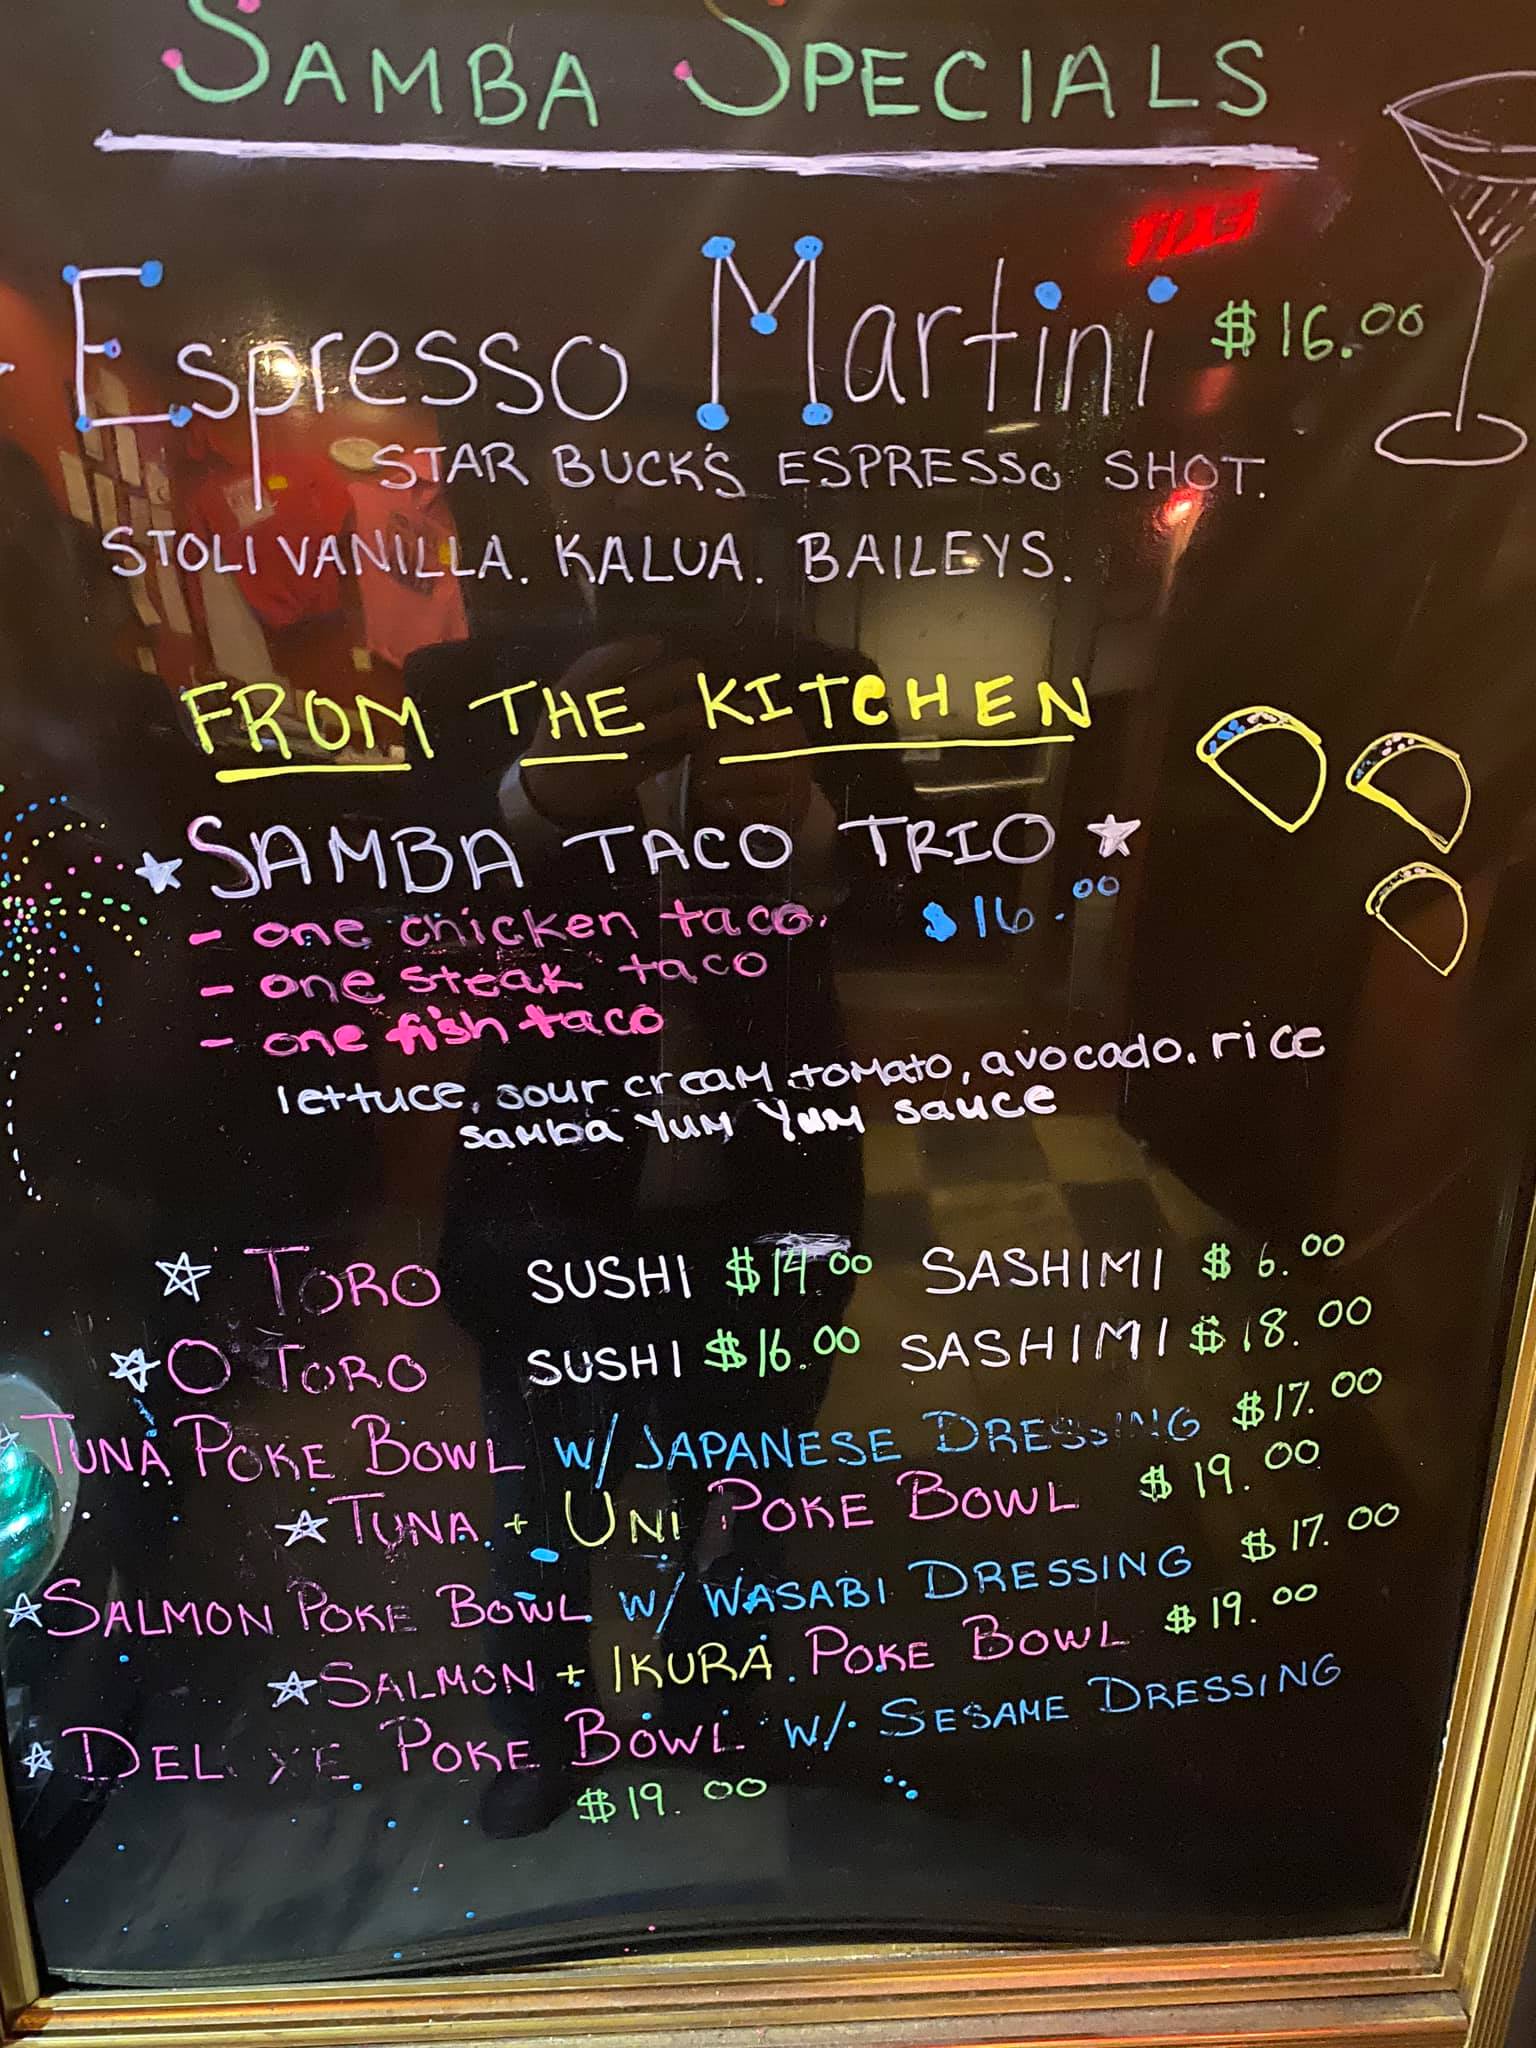 SAMBA SPECIALS
Espresso Martini $16.00
STAR BUCK'S ESPRESSO SHOT.
STOLI VANILLA. KALUA. BAILEYS.
FROM THE KITCHEN
SAMBA TACO TRIO
- one chicken taco. $16.00
- one steak taco
- one fish taco
lettuce, sour cream, tomato, avocado. rice
samba yum yum sauce
TORO SUSHI $14.00 SASHIMI $ 6.00
O TORO SUSHI $16.00 SASHIMI $18.00
TUNA POKE BOWL W/ JAPANESE DRESSING $17.00
TUNA + UNI POKE BOWL $19.00
SALMON POKE BOWL W/ WASABI DRESSING $17.00
SALMON + IKURA POKE BOWL $19.00
DEL XE POKE BOWL W/ SESAME DRESSING
$19.00
EXIT